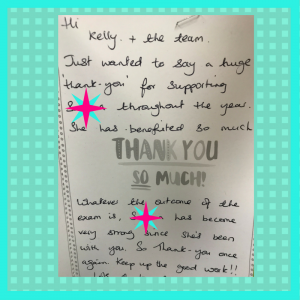 Hi
Kelly. + the team.
Just wanted to say a huge
'thank-you' for supporting
throughout the year.
She has benefited so much
THANK YOU
SO MUCH!
Whatever the outcome of the
exam is, has become
very strong since she's been
with you. So Thank-you once
again. Keep up the good work!!